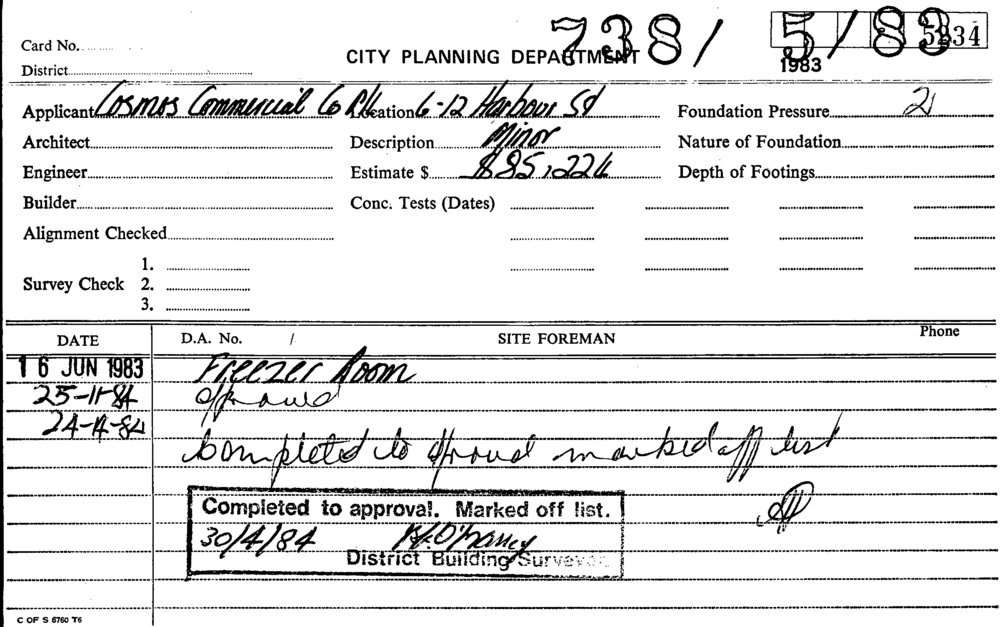 738/ 5/83 5234
Card No.
CITY PLANNING DEPARTMENT 1983
District
Applicant Cosmos Commercial Co P/L Location 6-12 Harbour St Foundation Pressure 21
Architect Description Minor Nature of Foundation
Engineer Estimate $ $85,224 Depth of Footings
Builder Conc. Tests (Dates)
Alignment Checked
1.
Survey Check 2.
3.
DATE D.A. No. / SITE FOREMAN Phone
16 JUN 1983 Freezer Room
25-11-84
24-4-84
Completed to marked off list
Completed to approval. Marked off list.
30/4/84
District Building Surveyor
C OF S 6760 T6